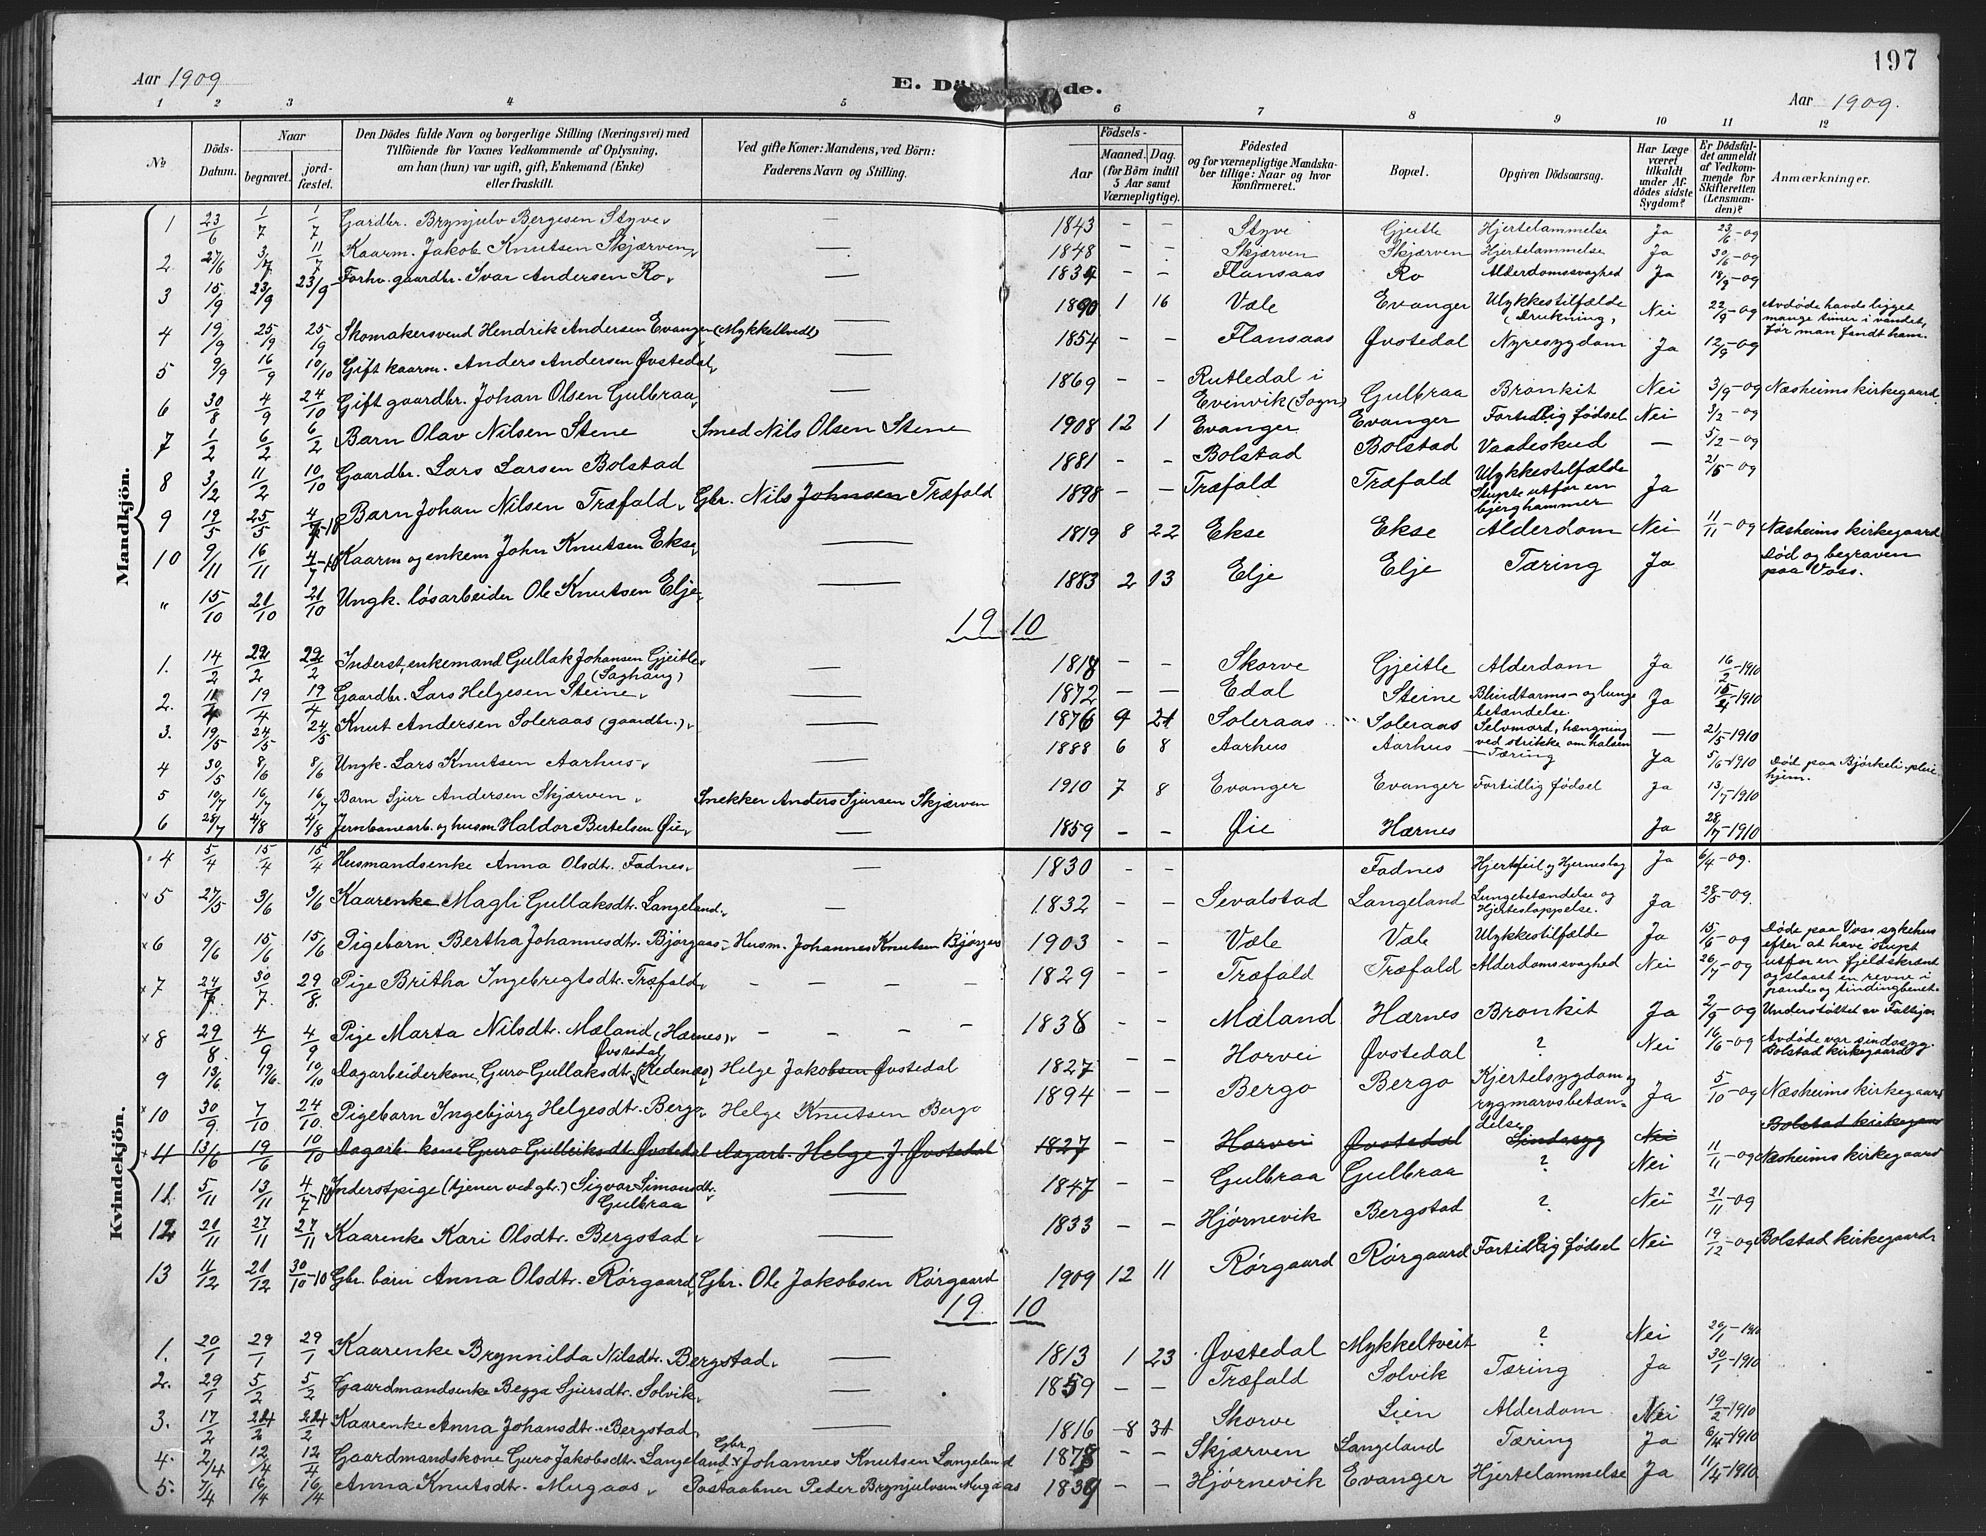 197
Aar 1909
E. Dö de.
Aar 1909.
1 2 3 4 5 6 7 8 9 10 11 12
No
Döds-Datum.
Naar
begravet.
jord-fæstet.
Den Dödes fulde Navn og borgerlige Stilling (Næringsvei) med
Tilföiende for Voxnes Vedkommende af Oplysning,
om han (hun) var ugift, gift, Enkemand (Enke)
eller fraskilt.
Ved gifte Koner: Mandens, ved Börn:
Faderens Navn og Stilling.
Födsels-
Aar
Maaned. Dag.
(for Börn indtil
5 Aar samt
Værnepligtige).
Födested
og for værnepligtige Mandska-
ber tillige: Naar og hvor
konfirmeret.
Bopæl.
Opgiven Dödsaarsag.
Har Læge
været
tilkaldt
under Af-
dödes sidste
Sygdom?
Er Dödsfal-
det anmeldt
af Vedkom-
mende for
Skifteretten
(Lensman-
den)?
Anmærkninger.
Mandkjön.
1 23/6 1/7 1/7 Gardbr. Brynjulv Bergesen Styve — 1843 – – Styvi Gjeitle Hjertelammelse Ja 23/6-09
2 27/6 3/7 11/7 Kaarm. Jakob Knutsen Skjærven — 1848 – – Skjærven Skjærven Hjertelammelse Ja 30/6-09
3 15/9 23/9 23/9 Forhv. gaardbr. Ivar Andersen Ro — 1834 – – Flansaas Ro Alderdomssvaghed Ja 18/9-09
4 19/9 25/9 25/9 Skomakersvend Hendrik Andersen Evanger (Mykkeltvedt) — 1890 1 16 Væle Evanger Ulykkestilfælde (Drukning) Nei 22/9-09 Avdøde havde ligget
mange timer i vandet,
før man fandt ham.
5 9/9 16/9 10/10 Gift kaarm. Anders Andersen Øvstedal — 1854 – – Flansaas Øvstedal Nyresygdom Ja 12/9-09
6 30/8 4/9 24/10 Gift gaardbr. Johan Olsen Gulbraa — 1869 – – Rutledal i
Evinvik (Sogn) Gulbraa Bronkit Nei 3/9-09 Næsheims kirkegaard.
7 1/2 6/2 6/2 Barn Olav Nilsen Stene Smed Nils Olsen Stene 1908 12 1 Evanger Evanger Fortidlig fødsel Nei 3/2-09
8 3/12 11/2 10/10 Gaardbr. Lars Larsen Bolstad — 1881 – – Bolstad Bolstad Vaadeskud – 5/2-09
9 19/5 25/5 Barn Johan Nilsen Træfald Gbr. Nils Johnsen Træfald 1898 – – Træfald Træfald Ulykkestilfælde
Stupte utfor en
bjerghammer Ja 21/5-09
10 9/11 16/11 4/7-10 Kaarm og enkem John Knutsen Ekse — 1819 8 22 Ekse Ekse Alderdom Nei 11/11-09 Næsheims kirkegaard
" 15/10 21/10 21/10 Ungk. løsarbeider Ole Knutsen Elje — 1883 2 13 Elje Elje Tæring Ja Død og begraven
paa Voss.
19 10
1. 14/2 22/2 22/2 Inderst, enkemand Gullak Johansen Gjeitle
(Saghaug) — 1818 – – Skorve Gjeitle Alderdom Ja 16/2-1910
2. 19/4 19/4 Gaardbr. Lars Helgesen Steine — 1872 – – Edal Steine Blindtarms- og lunge
betændelse. Ja 1910
3. 19/5 24/5 24/5 Knut Andersen Soleraas (gaardbr.) — 1876 9 21 Soleraas Soleraas Selvmord, hængning
ved strikke om halsen – 21/5-1910
4 30/5 8/6 8/6 Ungk. Lars Knutsen Aarhus — 1888 6 8 Aarhus Aarhus Tæring Ja 5/6-1910 Død paa Bjørkeli pleie
hjem.
5 10/7 16/7 16/7 Barn Sjur Andersen Skjærven Snekker Anders Sjursen Skjærven 1910 7 8 Evanger Evanger Fortidlig fødsel Ja 13/7-1910
6 28/7 4/8 4/8 Jernbanearb. og husm. Haldor Bertelsen Øie — 1859 – – Øie Hærnes Ja 28/7-1910
Kvindekjön.
4 5/4 15/4 15/4 Husmandsenke Anna Olsdt. Fadnes — 1830 – – Fadnes Hjertefeil og Hjerneslag Ja 6/4-09.
5 27/5 3/6 3/6 Kaarenke Magli Gullaksdtr. Langeland — 1832 – – Sevalstad Langeland Lungebetændelse og
Hjerteslappelse. Ja 28/5-09.
6 9/6 15/6 15/6 Pigebarn Bertha Johannesdtr. Bjørgaas Husm. Johannes Knutsen Bjørgaas 1903 – – Væle Væle Ulykkestilfælde Ja 15/6-09 Døde paa Voss sykehus
efter at have stupt
utfor en fjeldskrænt
og slaaet en revne i
pande- og tindingbenet.
7 24/7 30/7 29/8 Pige Britha Ingebrigtsdtr. Træfald – – – – 1829 – – Træfald Træfald Alderdomssvaghed Nei 26/7-09
8 29/8 4/9 4/9 Pige Marta Nilsdtr. Mæland (Hærnes) – – – – 1838 – – Mæland Hærnes Bronkit Ja 2/9-09 Understøttet av Fattigv.
9 13/6 19/6 10/10 Dagarbeiderkone Guro Gullaksdtr. Øvstedal (Kedenæs) Helge Jakobsen Øvstedal 1827 Horvei Øvstedal ? Nei 16/6-09 Avdøde var sindssyg.
Bolstad kirkegaard
10 30/9 7/10 24/10 Pigebarn Ingebjørg Helgesdtr. Bergo Helge Knutsen Bergo 1894 – – Bergo Bergo Kjertelsygdom og
rygmarvsbetæn-
delse Ja 5/10-09 Næsheims kirkegaard
11 13/6 19/6 10/10 Dagarb. kone Guro Gulleiksdt. Øvstedal Dagarb. Helge J. Øvstedal 1827 – – Horvei Øvstedal Sindssyg Nei Bolstad kirkegaard
11. 5/11 13/11 4/7-10 Inderstpige (tjener ved gbr.) Sigvor Simonsdt.
Gulbraa — 1847 Gulbraa Gulbraa ? Nei 11/11-09 Næsheims kirkegaard
12 21/11 27/11 27/11 Kaarenke Kari Olsdtr. Bergstad — 1833 – – Hjørnevik Bergstad ? Nei 21/11-09
13 11/12 21/12 30/10-10 Gbr. barn Anna Olsdtr. Rørgaard Gbr. Ole Jakobsen Rørgaard 1909 12 11 Rørgaard Rørgaard Fortidlig fødsel Nei 19/12-09 Bolstad kirkegaard
19 10
1. 20/1 29/1 29/1 Kaarenke Brynnilda Nilsdtr. Bergstad — 1813 1 23 Øvstedal Mykkeltveit ? Nei 20/1-1910
2. 29/1 5/2 5/2 Gaardmandsenke Begga Sjursdtr. Solvik — 1859 – – Træfald Solvik Tæring Ja 30/1-1910
3. 17/2 24/2 24/2 Kaarenke Anna Johansdtr. Bergstad — 1816 8 31 Skorve Lien Alderdom Nei 19/2-1910
4. 2/4 12/4 12/4 Gaardmandskone Guro Jakobsdtr. Langeland Gbr. Johannes Knutsen Langeland 1878 – – Skjærven Langeland Tæring Ja 6/4-1910
5. 7/4 16/4 16/4 Anna Knutsdtr. Mugaas Postaabner Peder Brynjulvsen Mugaas 1839 – – Hjørnevik Evanger Hjertelammelse Ja 11/4-1910